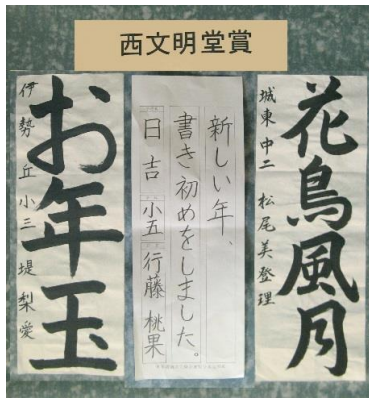 西文明堂賞
花鳥風月
城東中二 松尾美登理
新しい年、
書き初めをしました。
日吉 小五 行藤 桃果
お年玉
伊勢丘小三 堤 梨愛